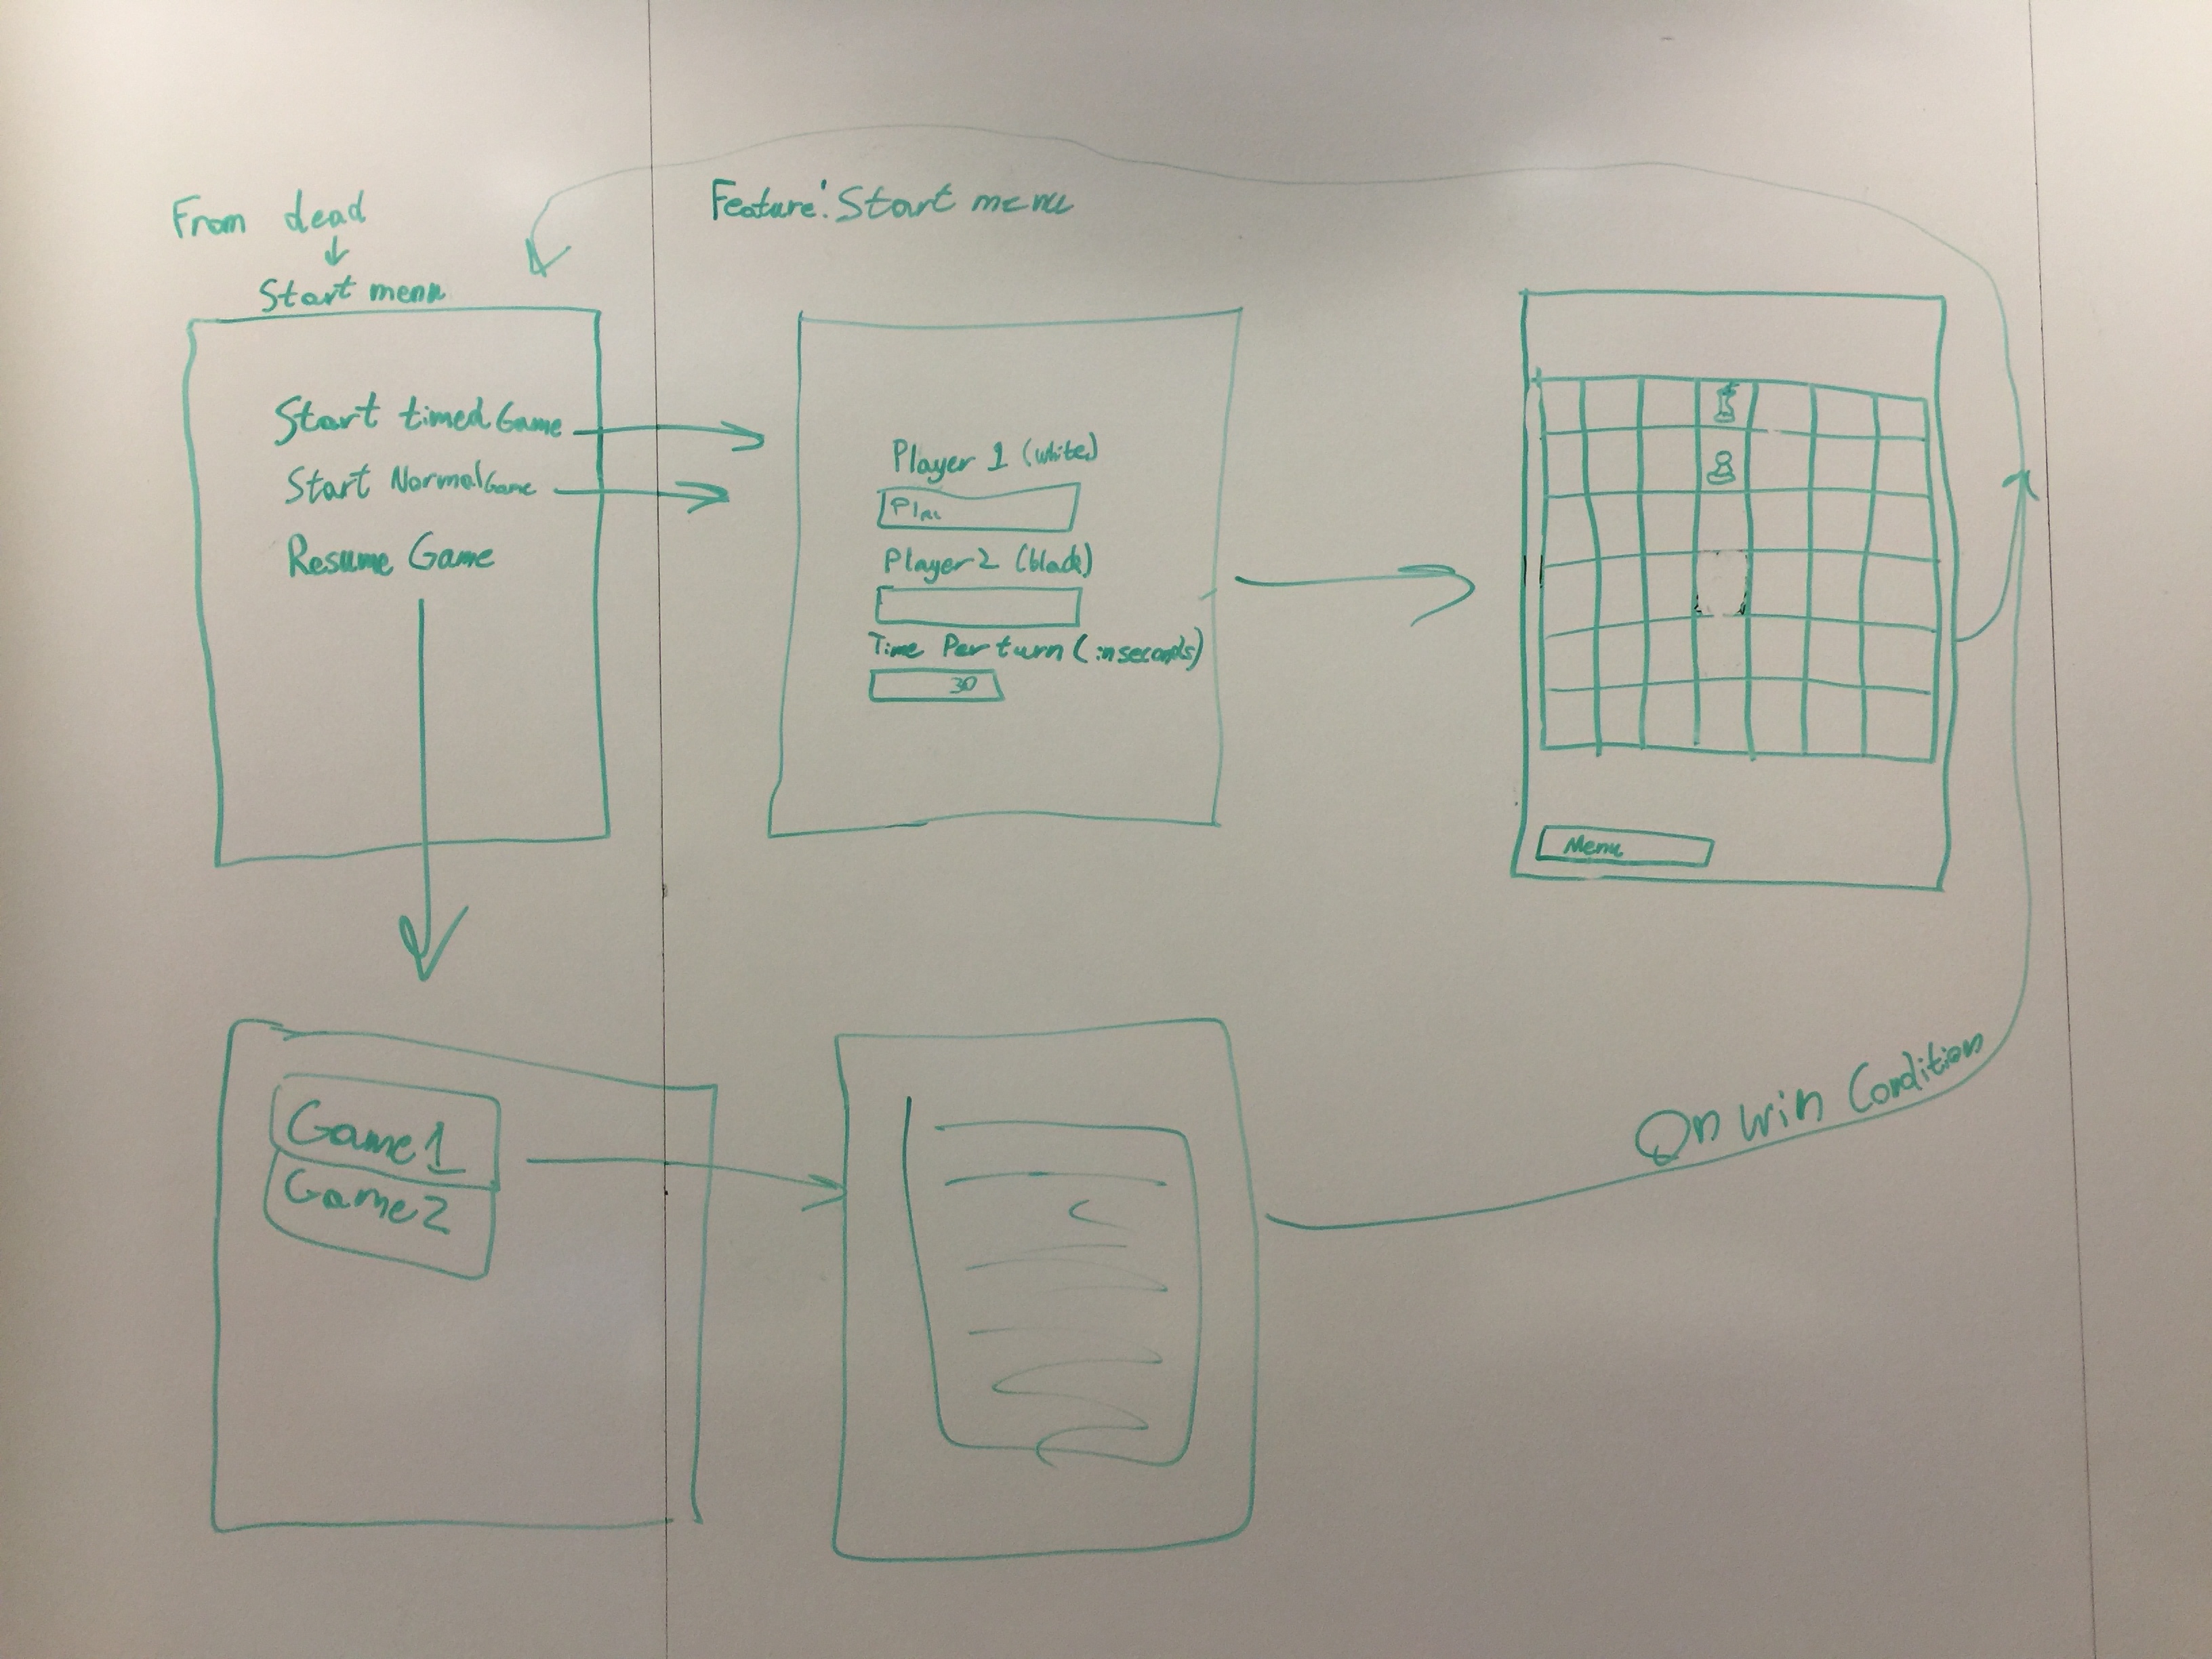 Feature: Start menu
From dead
Start menu
Start timed Game
Start Normal Game
Resume Game
Player 1 (white)
Player 2 (black)
Time Per turn (in seconds)
30
Menu
Game 1
Game 2
On win Condition